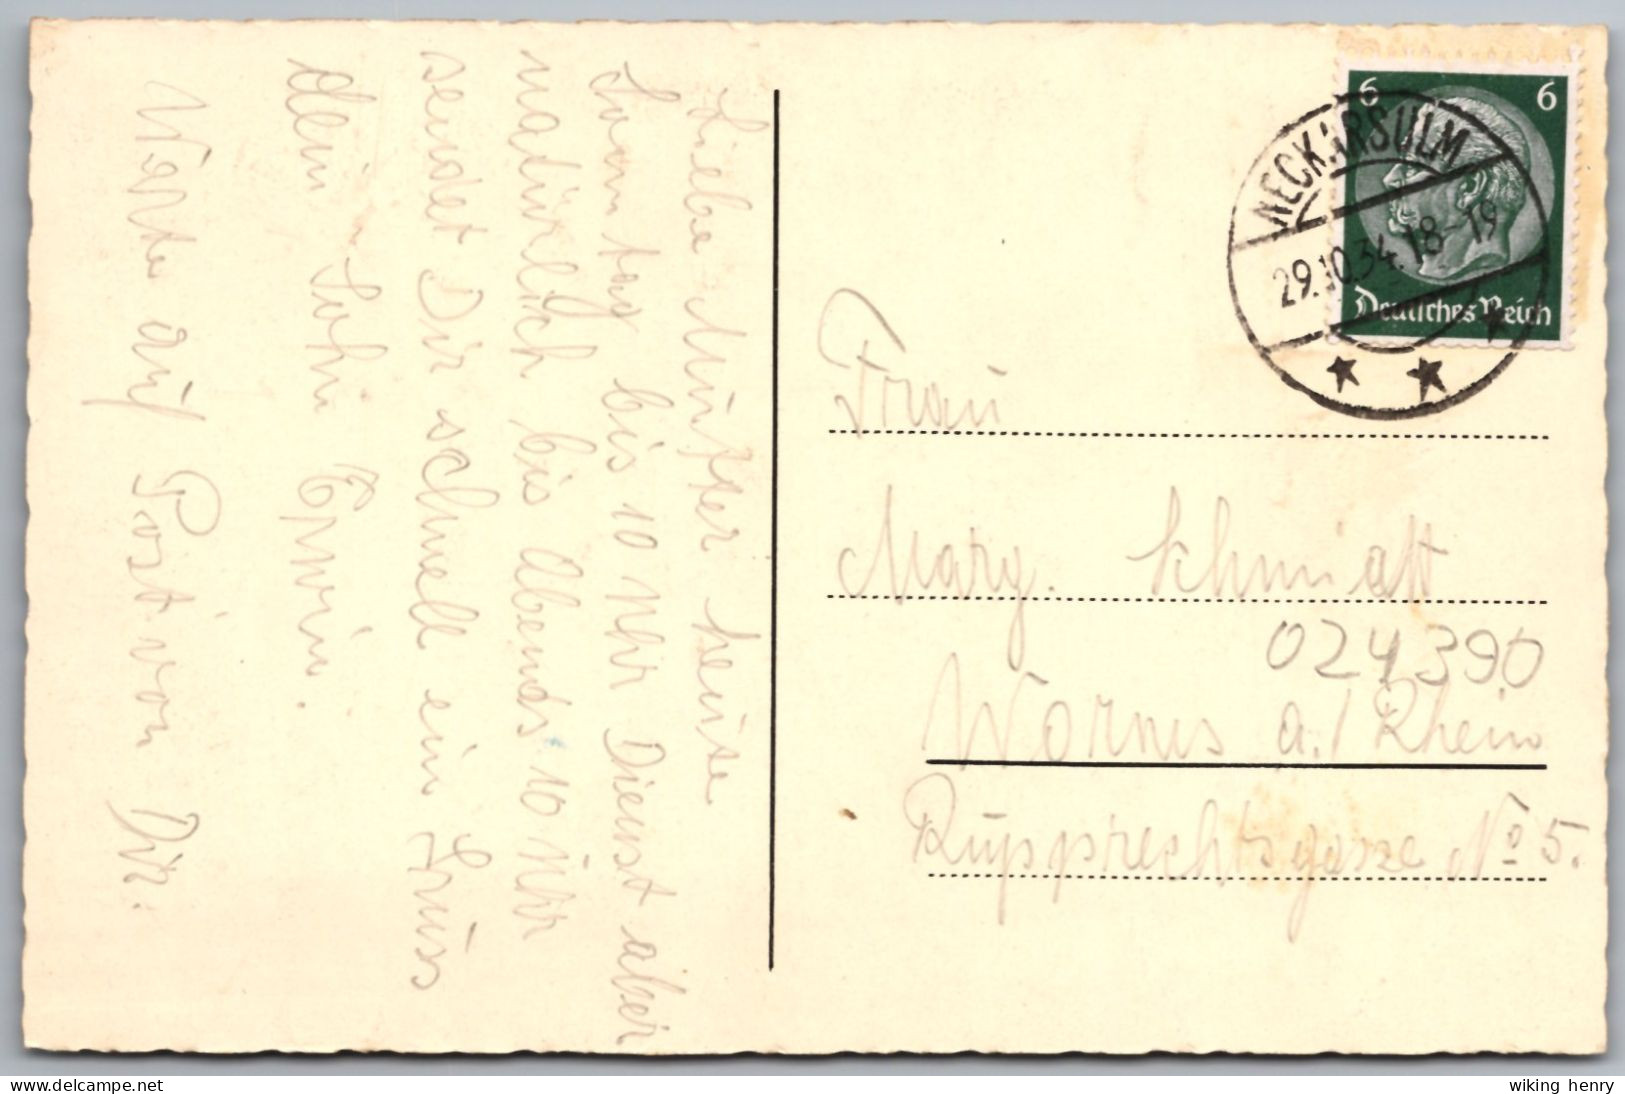 Liebe Mutter heute
Sonntag bis 10 Uhr Dienst aber
natürlich bis Abends 10 Uhr
sendet Dir schnell ein Gruss
Dein Sohn Erwin.
Warte auf Post von Dir.
6 6
NECKARSULM
29.10.34.18-19
Deutsches Reich
Frau
Marg. Schmidt
024390
Worms a./Rhein
Rupprechtsgasse No 5.
delcampe.net
wiking_henry